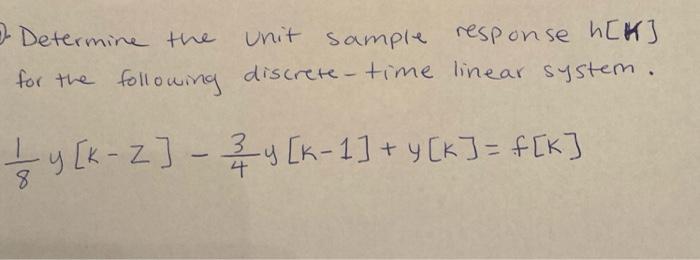 Determine the unit sample response h[K]
for the following discrete-time linear system.
1/8 y[k-2] - 3/4 y[k-1] + y[k] = f[k]